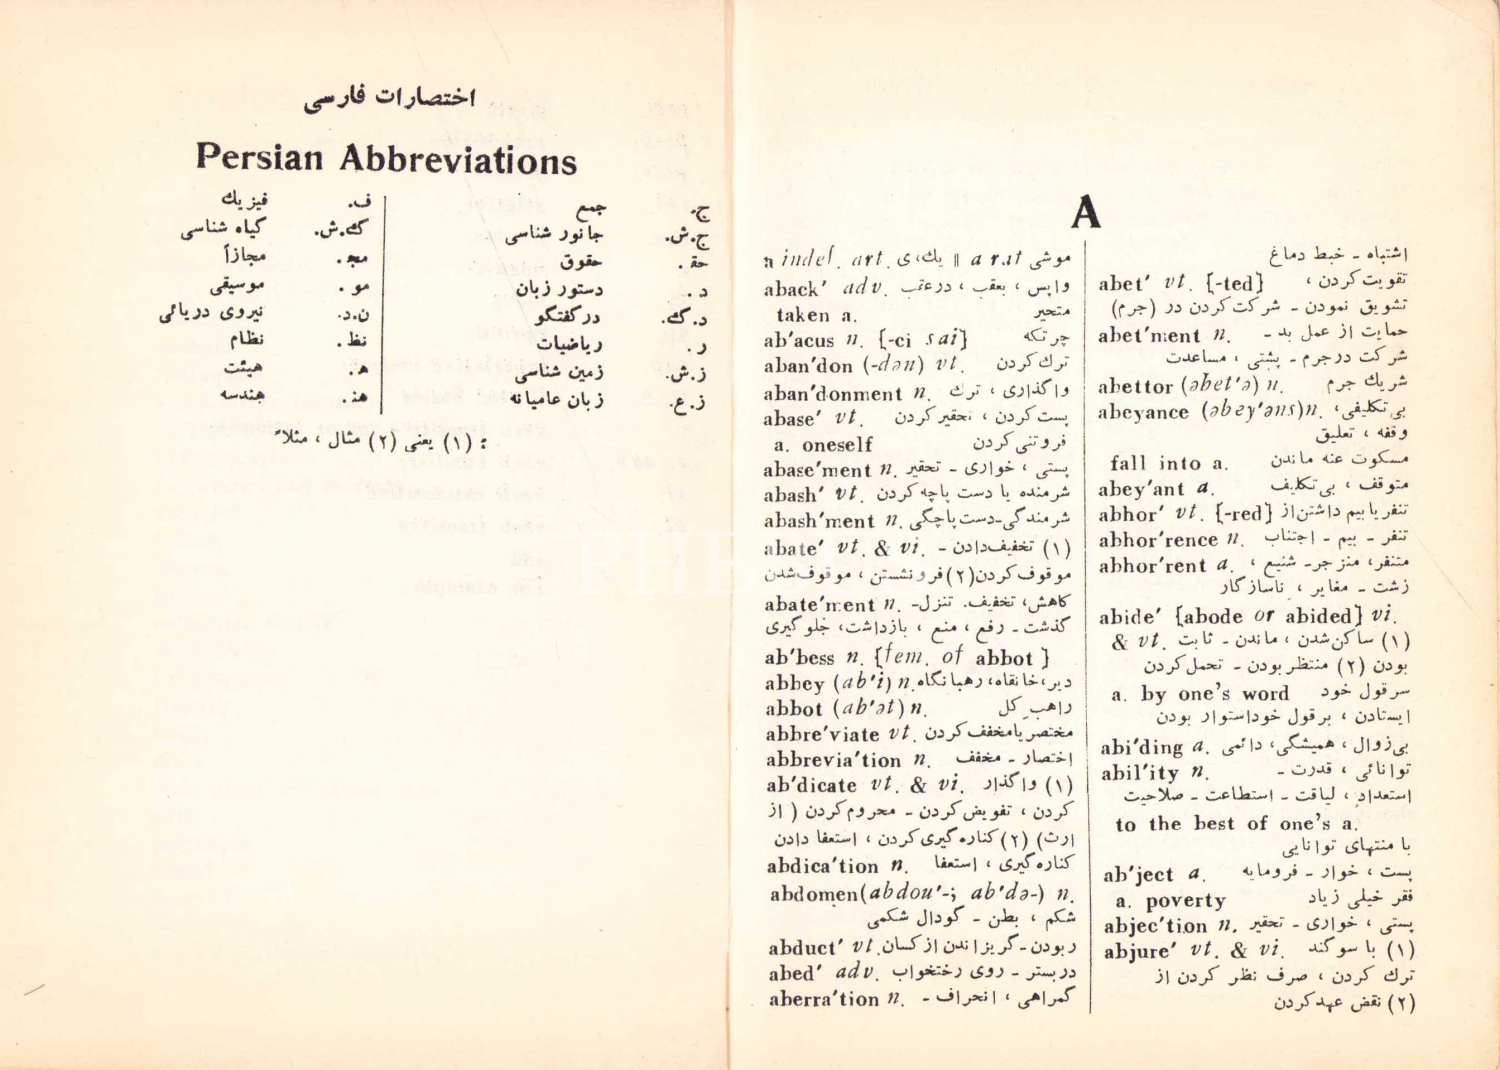 اختصارات فارسی
Persian Abbreviations
ج. جمع
ج.ش. جانور شناسی
حق. حقوق
د. دستور زبان
د.گ. در گفتگو
ر. ریاضیات
ز.ش. زمین شناسی
ز.ع. زبان عامیانه
ف. فیزیك
گ.ش. گیاه شناسی
مج. مجازاً
مو. موسیقی
ن.د. نیروی دریائی
نظ. نظام
ه. هیئت
هن. هندسه
: (۱) یعنی (۲) مثال ، مثلاً
A
a indef. art. یك، ی || a rat موشی
aback' adv. واپس ، بعقب ، درعقب
taken a. متحیر
ab'acus n. {-ci sai} چرتکه
aban'don (-dən) vt. ترك کردن
aban'donment n. واگذاری ، ترك
abase' vt. پست کردن ، تحقیر کردن
a. oneself فروتنی کردن
abase'ment n. پستی ، خواری - تحقیر
abash' vt. شرمنده یا دست پاچه کردن
abash'ment n. شرمندگی-دست پاچگی
abate' vt. & vi. (۱) تخفیف دادن -
موقوف کردن (۲) فرو نشستن ، موقوف شدن
abate'ment n. کاهش، تخفیف. تنزل-
گذشت - رفع ، منع ، بازداشت، جلوگیری
ab'bess n. {fem. of abbot }
abbey (ab'i) n. دیر، خانقاه، رهبانگاه
abbot (ab'ət) n. راهب کل
abbre'viate vt. مختصر یا مخفف کردن
abbrevia'tion n. اختصار - مخفف
ab'dicate vt. & vi. (۱) واگذار
کردن ، تفویض کردن - محروم کردن ( از
ارث) (۲) کناره گیری کردن ، استعفا دادن
abdica'tion n. کناره گیری ، استعفا
abdomen (abdou'-; ab'də-) n.
شکم ، بطن - گودال شکمی
abduct' vt. ربودن-گریزاندن از کسان
abed' adv. در بستر - روی رختخواب
aberra'tion n. گمراهی ، انحراف -
اشتباه - خبط دماغ
abet' vt. {-ted} تقویت کردن ،
تشویق نمودن - شرکت کردن در (جرم)
abet'ment n. حمایت از عمل بد -
شرکت درجرم - پشتی ، مساعدت
abettor (əbet'ə) n. شریك جرم
abeyance (əbey'əns) n. بی تکلیفی،
وقفه ، تعلیق
fall into a. مسکوت عنه ماندن
abey'ant a. متوقف ، بی تکلیف
abhor' vt. {-red} تنفر یا بیم داشتن از
abhor'rence n. تنفر - بیم - اجتناب
abhor'rent a. متنفر، منزجر- شنیع ،
زشت - مغایر ، ناسازگار
abide' {abode or abided} vi.
& vt. (۱) ساکن شدن ، ماندن - ثابت
بودن (۲) منتظر بودن - تحمل کردن
a. by one's word سرقول خود
ایستادن ، برقول خود استوار بودن
abi'ding a. بی زوال ، همیشگی، دائمی
abil'ity n. توانائی ، قدرت -
استعداد ، لیاقت - استطاعت - صلاحیت
to the best of one's a.
با منتهای توانایی
ab'ject a. پست ، خوار - فرومایه
a. poverty فقر خیلی زیاد
abjec'tion n. پستی ، خواری - تحقیر
abjure' vt. & vi. (۱) با سوگند
ترك کردن ، صرف نظر کردن از
(۲) نقض عهد کردن